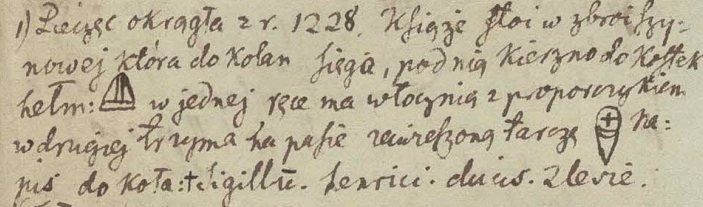 1) Pieczęć okrągła z r. 1228. Książe stoi w zbroi szy-
nowej która do kolan sięga, pod nią Kierzno do kostek
hełm: w jednej ręce ma włócznią z proporczykiem
w drugiej trzyma na pasie zawieszoną tarczę na:
pis do koła: + Sigillū. henrici. ducis. Zlesie.